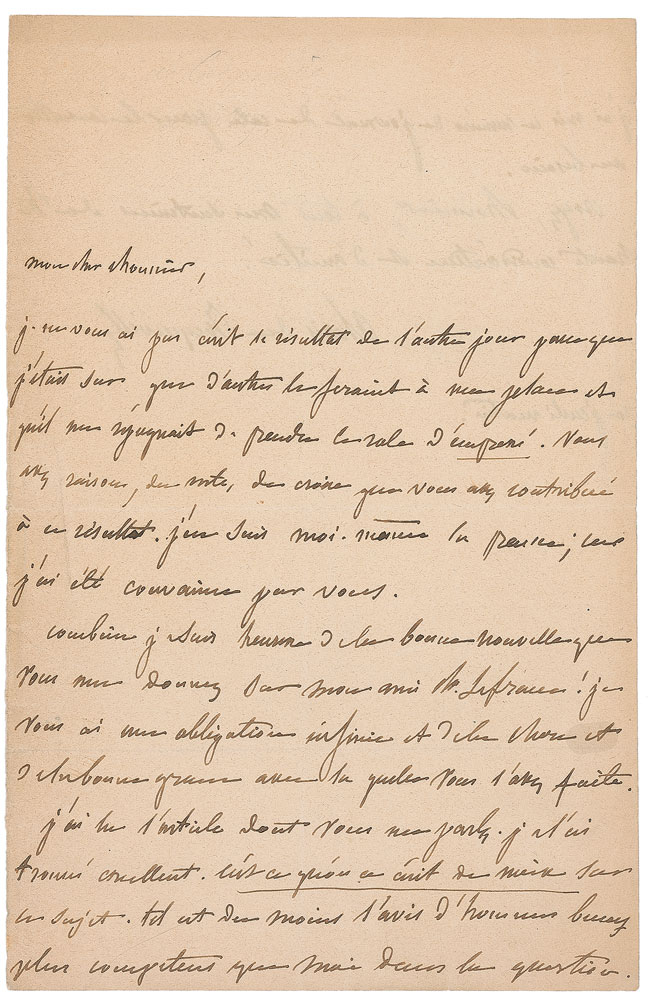 mon cher Monsieur,
je ne vous ai pas écrit le résultat de l'autre jour parce que
j'étais sur que d'autres le feraient à ma place et
qu'il me répugnait de prendre le role d'empressé. Vous
avez raison, du reste, de croire que vous avez contribué
à ce résultat. j'en suis moi-même la preuve; car
j'ai été convaincu par vous.
combien je suis heureux de la bonne nouvelle que
vous me donnez sur mon ami Lefranc! je
vous ai une obligation infinie et de la chose et
de la bonne grace avec la quelle vous l'avez faite.
j'ai lu l'article dont vous me parlez. je l'ai
trouvé excellent. c'est ce qu'on a écrit de mieux sur
ce sujet. tel est du moins l'avis d'hommes beaucoup
plus competens que moi dans la question.